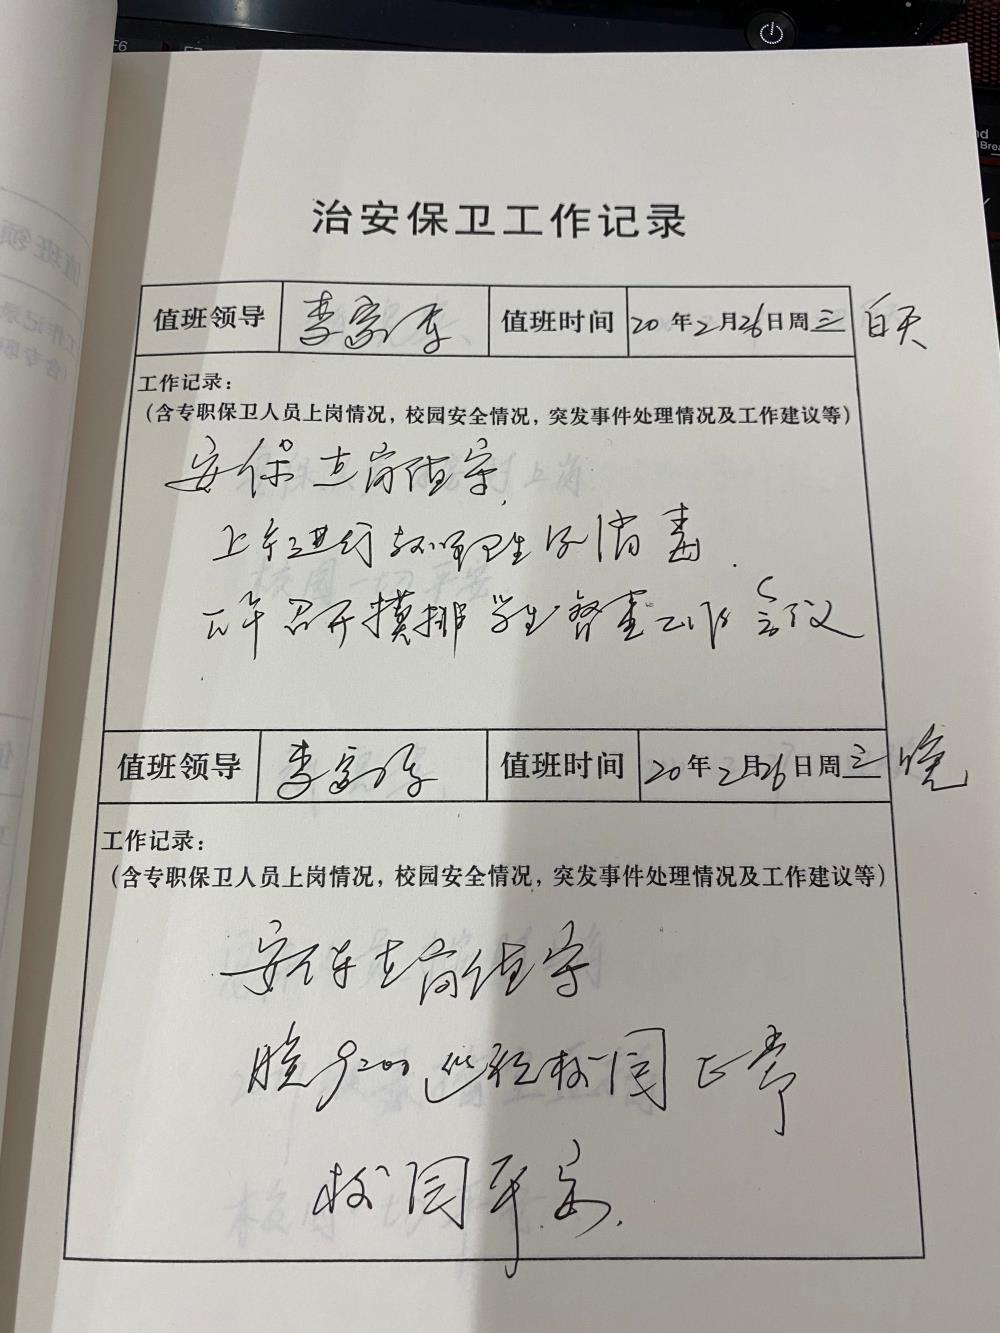 F6
治安保卫工作记录
值班领导 李富 值班时间 20年2月26日周三 白天
工作记录：
（含专职保卫人员上岗情况，校园安全情况，突发事件处理情况及工作建议等）
安保在岗值守
上午进行 消毒.
下午召开摸排学生 工作会议
值班领导 李富 值班时间 20年2月26日周三 晚
工作记录：
（含专职保卫人员上岗情况，校园安全情况，突发事件处理情况及工作建议等）
安保在岗值守
晚9:00巡视校园正常
校园平安.